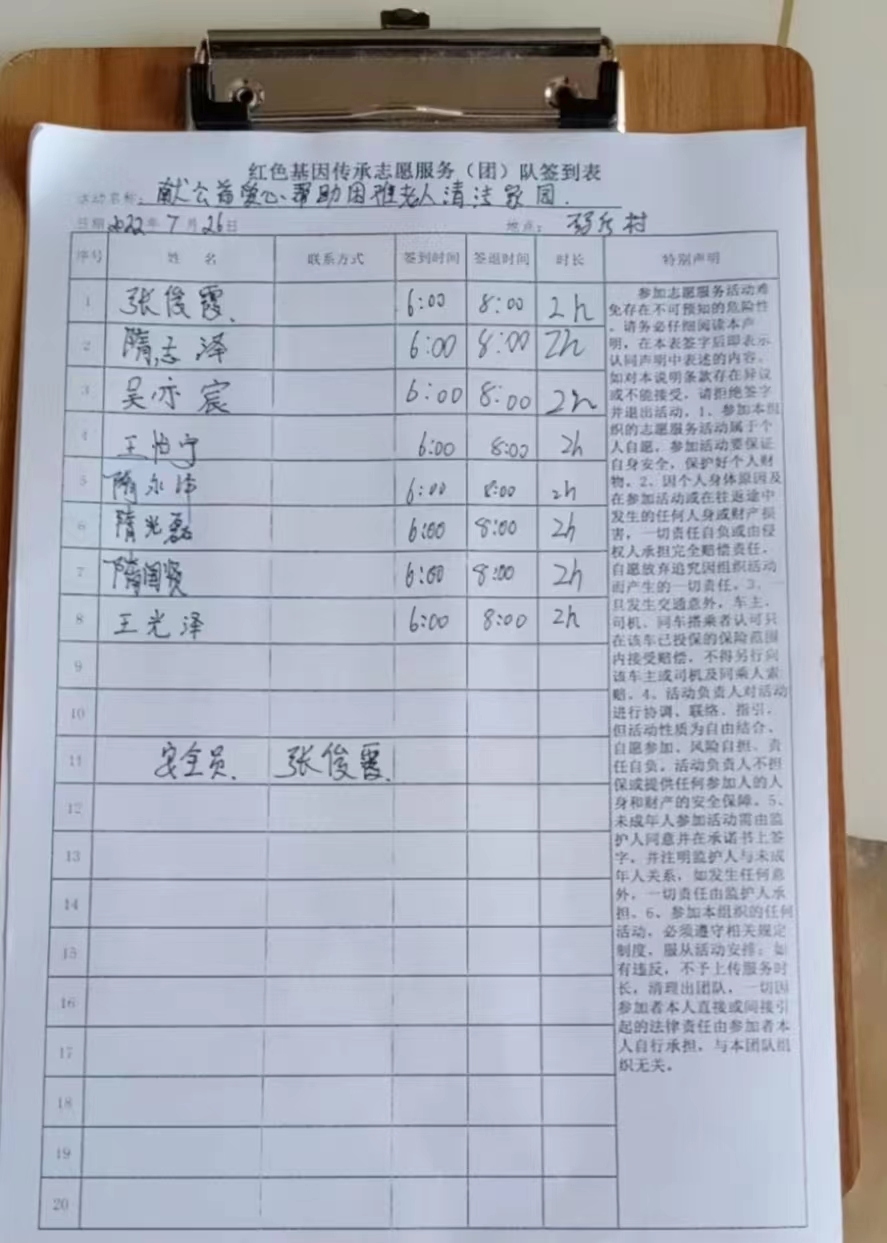 红色基因传承志愿服务（团）队签到表
活动名称：献公益爱心、帮助困难老人清洁家园.
日期2022年7月26日 地点： 村
序号 姓 名 联系方式 签到时间 签退时间 时长 特别声明
1 张俊霞. 6:00 8:00 2h
2 隋志泽 6:00 8:00 2h
3 吴亦宸 6:00 8:00 2h
4 王怡宁 6:00 8:00 2h
5 隋永 6:00 8:00 2h
6 隋光磊 6:00 8:00 2h
7 隋国贤 6:00 8:00 2h
8 王光泽 6:00 8:00 2h
9
10
11 安全员. 张俊霞.
12
13
14
15
16
17
18
19
20
参加志愿服务活动难
免存在不可预知的危险性
，请务必仔细阅读本声
明，在本表签字后即表示
认同声明中表述的内容。
如对本说明条款存在异议
或不能接受，请拒绝签字
并退出活动。1、参加本组
织的志愿服务活动属于个
人自愿，参加活动要保证
自身安全，保护好个人财
物。2、因个人身体原因及
在参加活动或在往返途中
发生的任何人身或财产损
害，一切责任自负或由侵
权人承担完全赔偿责任，
自愿放弃追究因组织活动
而产生的一切责任。3、一
旦发生交通意外，车主、
司机、同车搭乘者认可只
在该车已投保的保险范围
内接受赔偿，不得另行向
该车主或司机及同乘人索
赔。4、活动负责人对活动
进行协调、联络、指引，
但活动性质为自由结合、
自愿参加、风险自担、责
任自负。活动负责人不担
保或提供任何参加人的人
身和财产的安全保障。5、
未成年人参加活动需由监
护人同意并在承诺书上签
字，并注明监护人与未成
年人关系，如发生任何意
外，一切责任由监护人承
担。6、参加本组织的任何
活动，必须遵守相关规定
制度，服从活动安排；如
有违反，不予上传服务时
长，清理出团队，一切因
参加者本人直接或间接引
起的法律责任由参加者本
人自行承担，与本团队组
织无关。